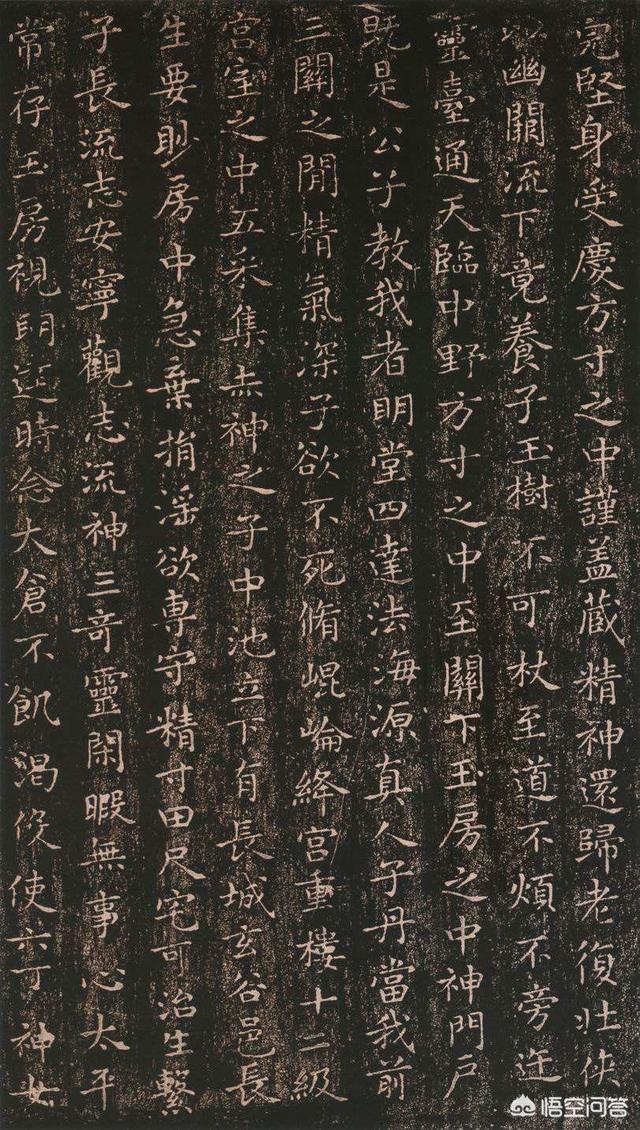 完堅身受慶方寸之中謹盖藏精神還歸老復壯俠
以幽關流下竟養子玉樹不可杖至道不煩不旁迕
靈臺通天臨中野方寸之中至關下玉房之中神門戶
既是公子教我者明堂四達法海源真人子丹當我前
三關之閒精氣深子欲不死脩崐崘絳宮重樓十二級
宮室之中五采集赤神之子中池立下有長城玄谷邑長
生要眇房中急棄捐淫欲專守精寸田尺宅可治生繫
子長流志安寧觀志流神三奇靈閑暇無事心太平
常存玉房視明達時念大倉不飢渴伇使六丁神女
悟空问答